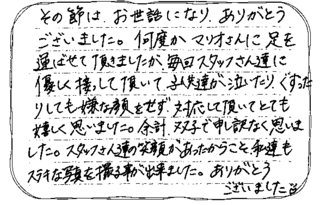 その節は お世話になり、ありがとう
ございました。何度か マリオさんに 足を
運ばせて 頂きましたが、毎回スタッフさん達に
優しく 接して 頂いて、子供達が 泣いたり、ぐずった
りしても 嫌な顔を せず、対応して 頂いて とても
嬉しく 思いました。余計 双子で 申訳なく 思いま
した。スタッフさん達の 笑顔があったからこそ 私達も
ステキな 写真を 撮る事が 出来ました。ありがとう
ございました